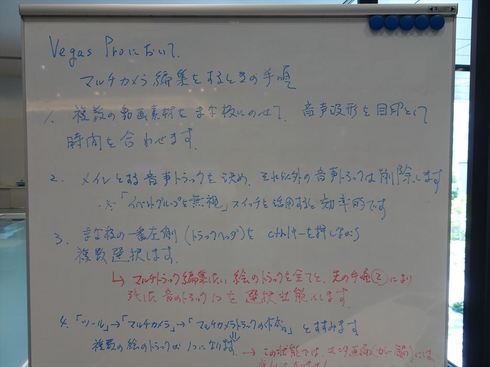 Vegas Proにおいて、
マルチカメラ編集をするときの手順
1. 複数の動画素材をまな板にのせて、音声波形を目印にして
時間を合わせます。
2. メインとする音声トラックを決め、それ以外の音声トラックは削除します
※「イベントグループを無視」スイッチを活用すると効率的です
3. まな板の一番左側(トラックヘッダ)を ctrlキーを押しながら
複数選択します。
↳ マルチトラック編集したい絵のトラックを全てと、先の手順②により
残した音のトラック1つを選択状態にします。
4. 「ツール」→「マルチカメラ」→「マルチカメラトラックの作成」とすすみます
複数の絵のトラックが1つになります
→ この状態では、